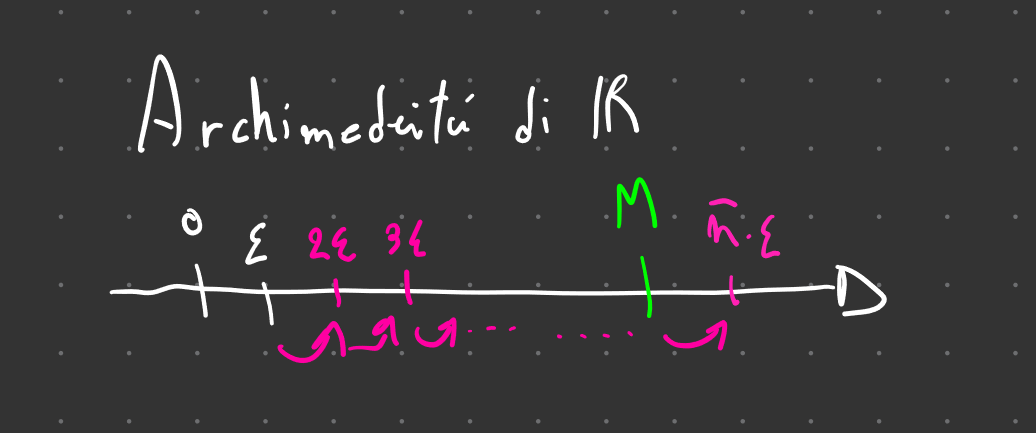 Archimedeità di ℝ
0 ε 2ε 3ε M n̄·ε